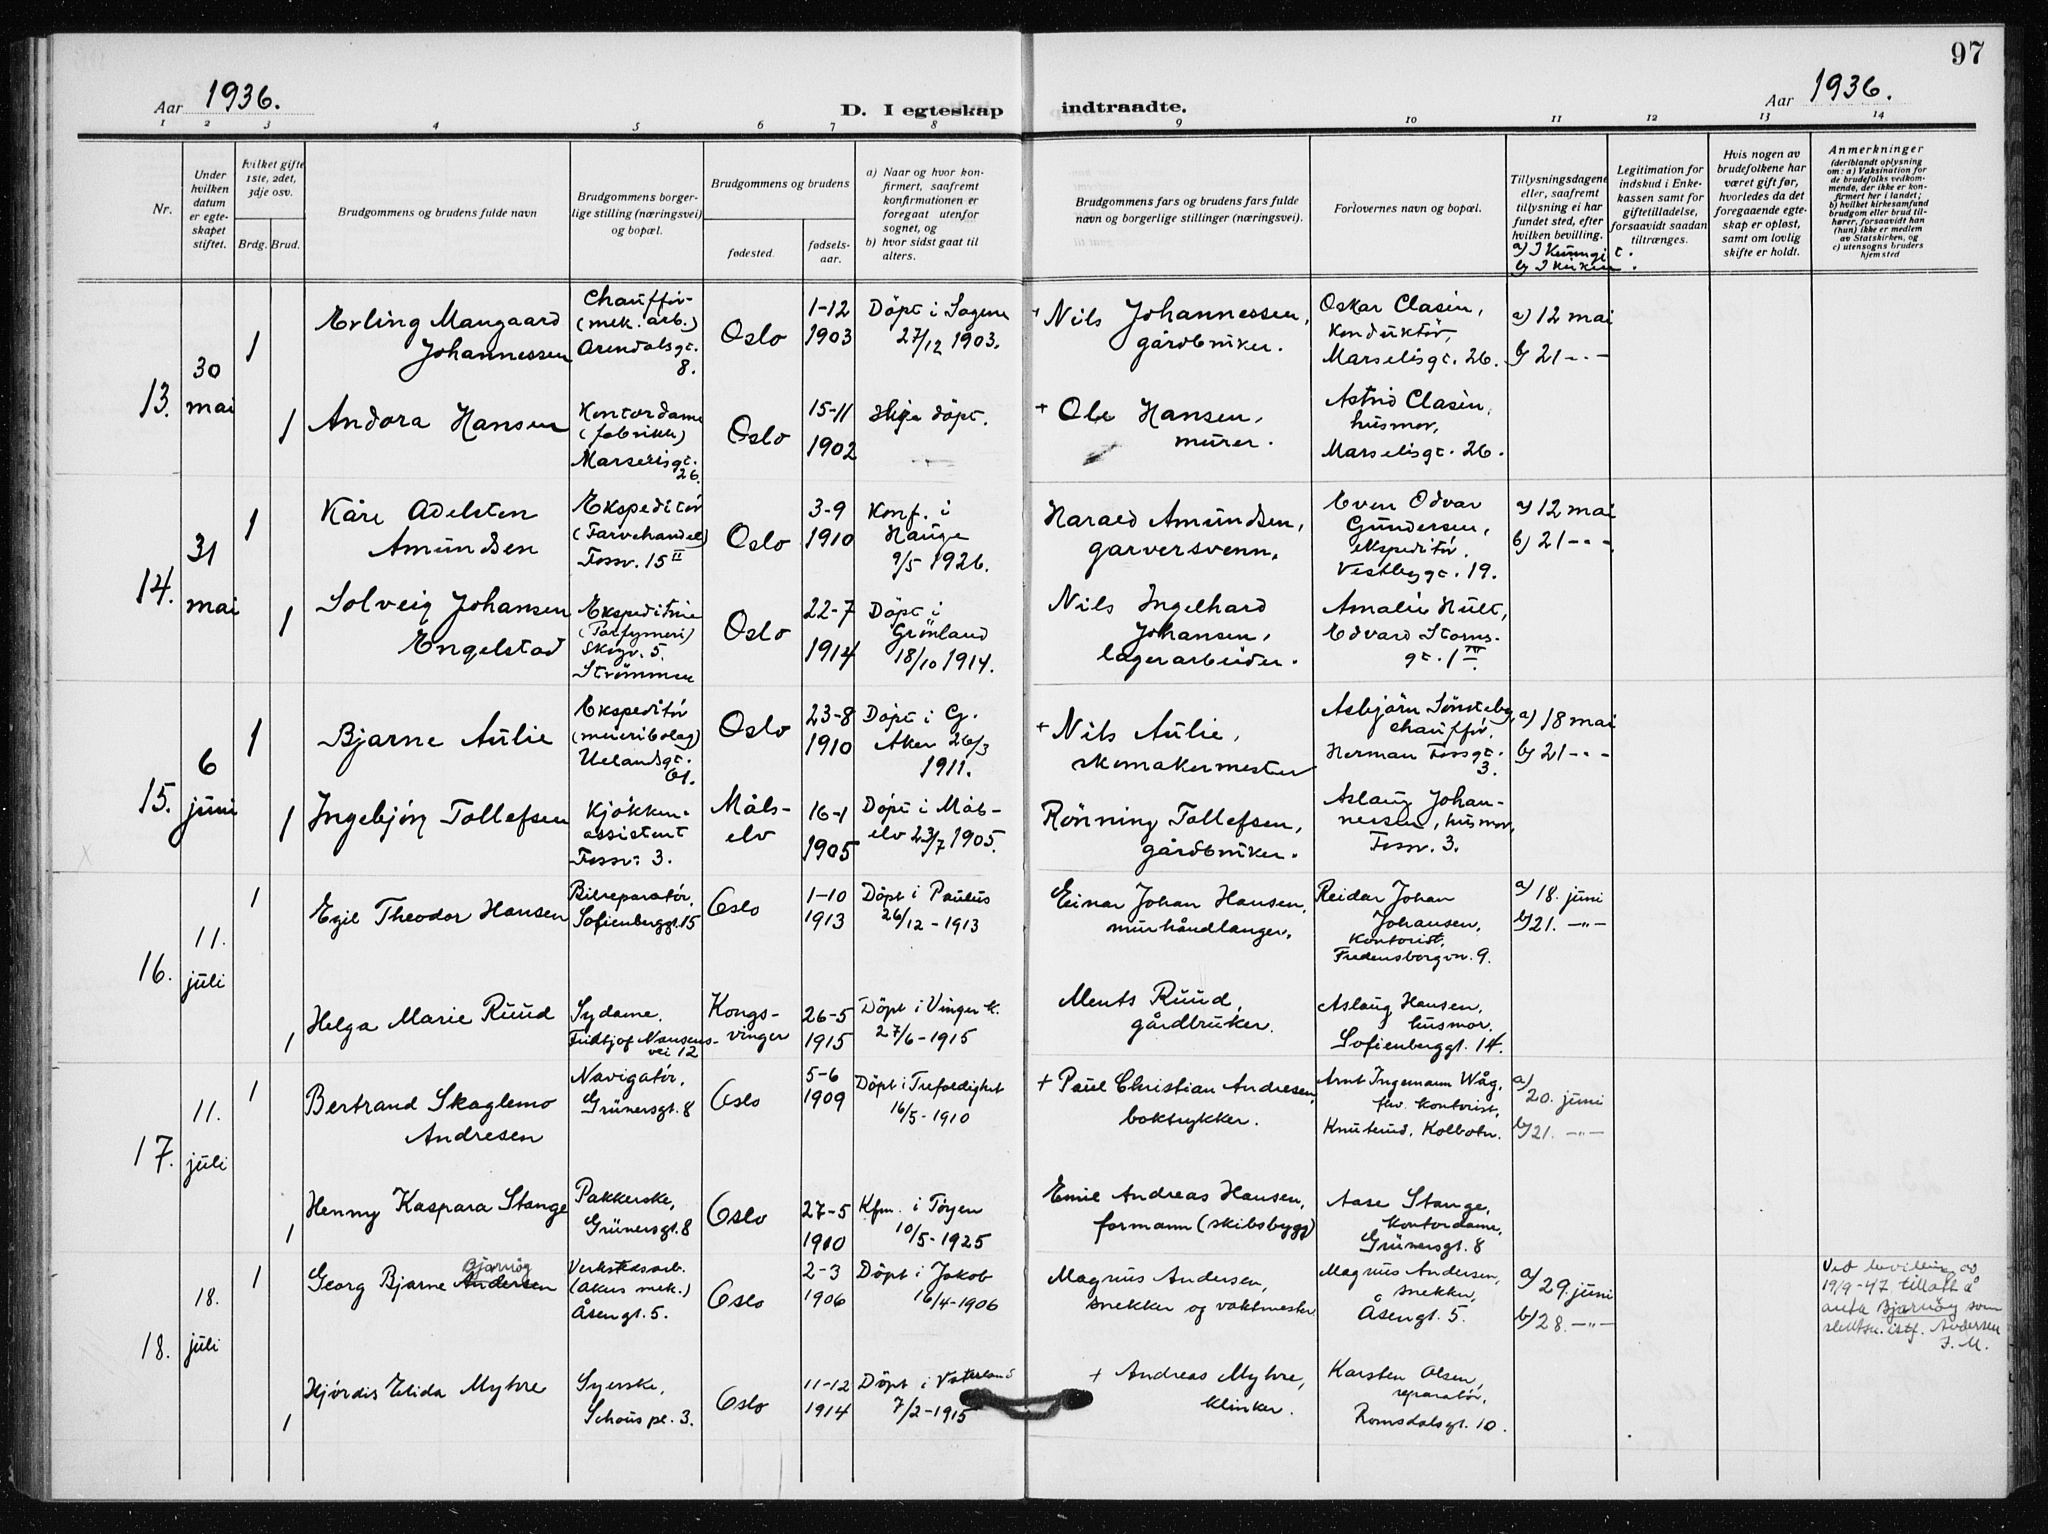 97
Aar 1936.
D. I egteskap indtraadte.
Aar 1936.
1 2 3 4 5 6 7 8 9 10 11 12 13 14
Nr.
Under
hvilken
datum
er egte-
skapet
stiftet.
hvilket gifte
1ste, 2det,
3dje osv.
Brdg. Brud.
Brudgommens og brudens fulde navn
Brudgommens borger-
lige stilling (næringsvei)
og bopæl.
Brudgommens og brudens
fødested.
fødsels-
aar.
a) Naar og hvor kon-
firmert, saafremt
konfirmationen er
foregaat utenfor
sognet, og
b) hvor sidst gaat til
alters.
Brudgommens fars og brudens fars fulde
navn og borgerlige stillinger (næringsvei).
Forlovernes navn og bopæl.
Tillysningsdagene
eller, saafremt
tillysning ei har
fundet sted, efter
hvilken bevilling.
a) I Kunngjt.
b) I kirken.
Legitimation for
indskud i Enke-
kassen samt for
giftetilladelse,
forsaavidt saadan
tiltrænges.
Hvis nogen av
brudefolkene har
været gift før,
hvorledes da det
foregaaende egte-
skap er opløst,
samt om lovlig
skifte er holdt.
Anmerkninger
(deriblandt oplysning
om: a) Vaksination for
de brudefolks vedkom-
mende, der ikke er kon-
firmert her i landet;
b) hvilket kirkesamfund
brudgom eller brud til-
hører, forsaavidt han
(hun) ikke er medlem
av Statskirken, og
c) utensogns bruders
hjemsted
13.
30
mai
1
Erling Maugaard
Johannessen
Chauffør-
(mek. arb.)
Arendalsgt.
8.
Oslo
1-12
1903
Döpt i Sagene
27/12 1903.
+ Nils Johannessen,
gårdbruker.
Oskar Clasin,
konduktör,
Marselisgt. 26.
a) 12 mai
b) 21 - " -
1
Andora Hansen
Kontordame
(fabrikk)
Marselisgt.
26.
Oslo
15-11
1902
Ikke döpt.
+ Ole Hansen,
murer.
Astrid Clasin,
husmor,
Marselisgt. 26.
14.
31
mai
1
Kåre Adelsten
Amundsen
Ekspeditör
(Farvehandel)
Fossv. 15 II
Oslo
3-9
1910
Konf. i
Hauge
9/5 1926.
Harald Amundsen,
garversvenn.
Even Odvar
Gundersen,
ekspeditör.
Vestbygt. 19.
a) 12 mai
b) 21 - " -
1
Solveig Johansen
Engelstad
Ekspeditrise
(Parfymeri)
Skogv. 5.
Strömmen
Oslo
22-7
1914
Döpt i
Grönland
18/10 1914.
Nils Ingelhard
Johansen,
lagerarbeider.
Amalie Hult,
Edvard Storms-
gt. 1 IV.
15.
6
juni
1
Bjarne Aulie
Ekspeditör
(meieribolag)
Uelandsgt.
61.
Oslo
23-8
1910
Döpt i G.
Aker 26/3
1911.
+ Nils Aulie,
skomakermester
Asbjörn Sönsteby,
chauffør,
Herman Fossgt.
3.
a) 18 mai
b) 21 - " -
1
Ingebjörg Tollefsen
Kjökken-
assistent
Fossv. 3.
Måls-
elv
16-1
1905
Döpt i Måls-
elv 23/7 1905.
Rönning Tollefsen,
gårdbruker.
Aslaug Johan-
nessen, husmor,
Fossv. 3.
16.
11.
juli
1
Egil Theodor Hansen
Bilreparatør,
Sofienberggt. 15
Oslo
1-10
1913
Döpt i Paulus
26/12 - 1913
Einar Johan Hansen,
murhåndlanger.
Reidar Johan
Johansen,
kontorist,
Fredensborgvn. 9.
a) 18. juni
b) 21. -"-
1
Helga Marie Ruud
Sydame.
Fridtjof Nansens-
vei 12
Kongs-
vinger
26-5
1915
Döpt i Vinger k.
27/6 - 1915
Ments Ruud,
gårdbruker.
Aslaug Hansen,
husmor.
Sofienberggt. 14.
17.
11.
juli
1
Bertrand Skaglemo
Andresen
Navigatør,
Grünersgt. 8
Oslo
5-6
1909
Döpt i Trefoldighet
16/5 - 1910
+ Paul Christian Andresen,
boktrykker.
Arnt Ingemann Wåg,
fhv. kontorist,
Knuterud, Kolbotn.
a) 20. juni
b) 21. -"-
1
Henny Kaspara Stange
Pakkerske,
Grünersgt. 8
Oslo
27-5
1910
Kfm. i Tøyen
10/5 - 1925
Emil Andreas Hansen,
formann (skibsbygg)
Aase Stange,
kontordame,
Grünersgt. 8
18.
18.
juli
1
Bjarnøy
Georg Bjarne Andersen
Verkstedsarb.
(Akers mek.)
Åsengt. 5.
Oslo
2-3
1906
Döpt i Jakob
16/4 - 1906
Magnus Andersen,
snekker og vaktmester
Magnus Andersen,
snekker,
Åsengt. 5.
a) 29. juni
b) 28. -"-
Ved bevilling av
19/9-47 tillatt å
anta Bjarnøy som
slektsn. istf. Andersen
F. M.
1
Hjördis Elida Myhre
Syerske,
Schous pl. 3.
Oslo
11-12
1914
Döpt i Vaterland
7/2 - 1915
+ Andreas Myhre,
klinker.
Karsten Olsen,
reparatør,
Romsdalsgt. 10.